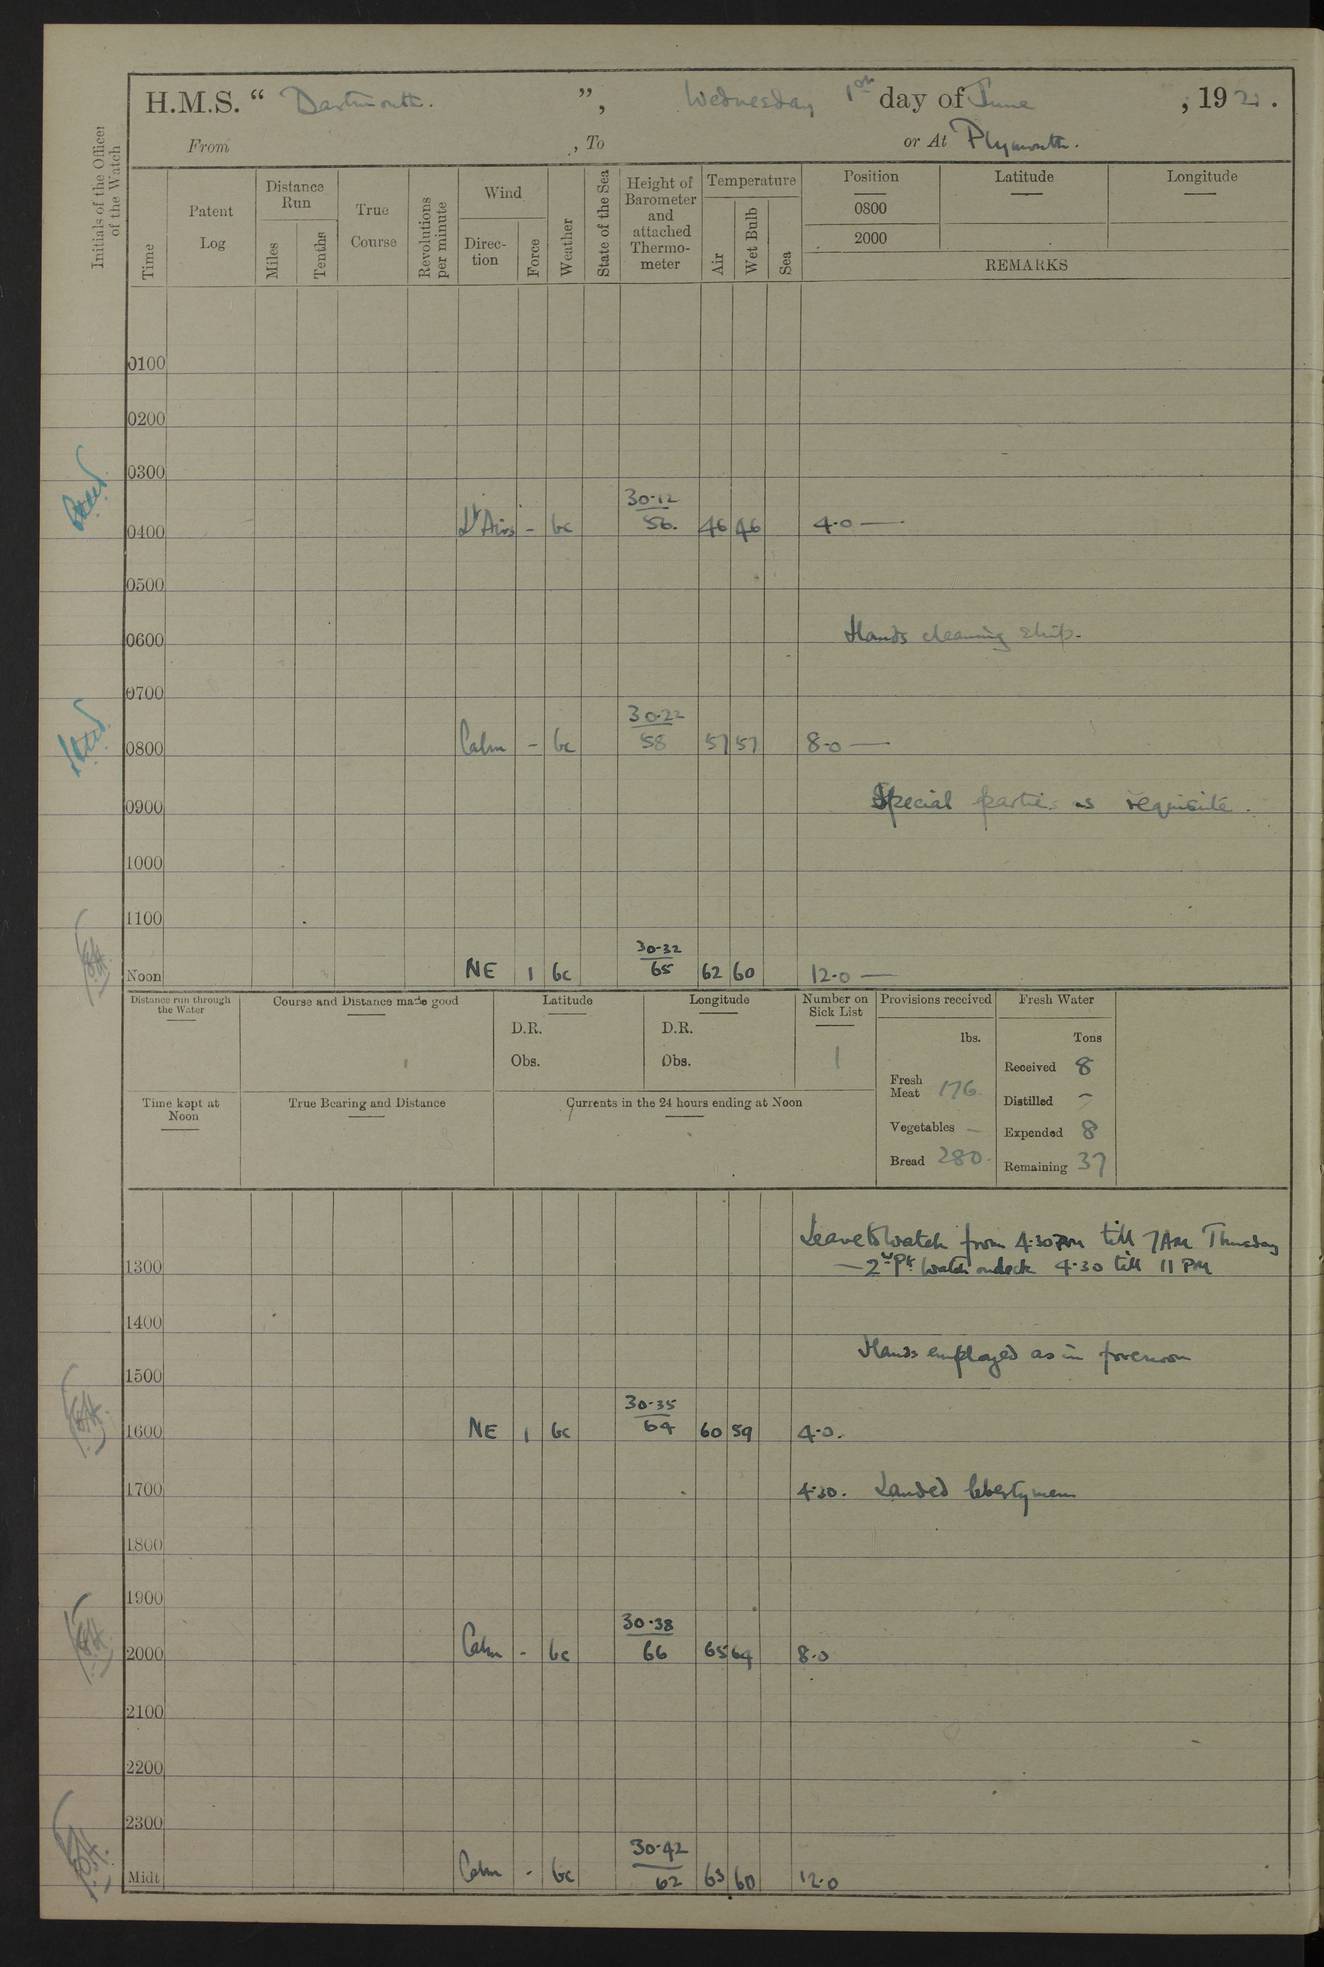 H.M.S. “ Dartmouth. ”, Wednesday 1st day of June , 1921.
From , To or At Plymouth.
Initials of the Officer of the Watch
Time
Patent Log
Distance Run
Miles
Tenths
True Course
Revolutions per minute
Wind
Direc-tion
Force
Weather
State of the Sea
Height of Barometer and attached Thermo-meter
Temperature
Air
Wet Bulb
Sea
Position Latitude Longitude
0800
2000
REMARKS
0100
0200
0300
0400 Lt Airs - bc 30.12 56. 46 46 4.0 —
0500
0600 Hands cleaning ship.
0700
0800 Calm - bc 30.22 58 57 57 8.0 —
0900 Special parties as requisite.
1000
1100
Noon NE 1 bc 30.32 65 62 60 12.0 —
Distance run through the Water
Course and Distance made good
Latitude
D.R.
Obs.
Longitude
D.R.
Obs.
Number on Sick List
1
Provisions received
lbs.
Fresh Meat 176
Vegetables —
Bread 280.
Fresh Water
Tons
Received 8
Distilled -
Expended 8
Remaining 37
Time kept at Noon
True Bearing and Distance
Currents in the 24 hours ending at Noon
Leave to Watch from 4.30 PM till 7 AM Thursday
1300 — 2nd Pt Watch ondeck 4.30 till 11 PM
1400
Hands employed as in forenoon
1500
1600 NE 1 bc 30.35 64 60 59 4.0.
1700 4.30. Landed libertymen
1800
1900
2000 Calm - bc 30.38 66 65 64 8.0
2100
2200
2300
Midt Calm - bc 30.42 62 63 60 12.0